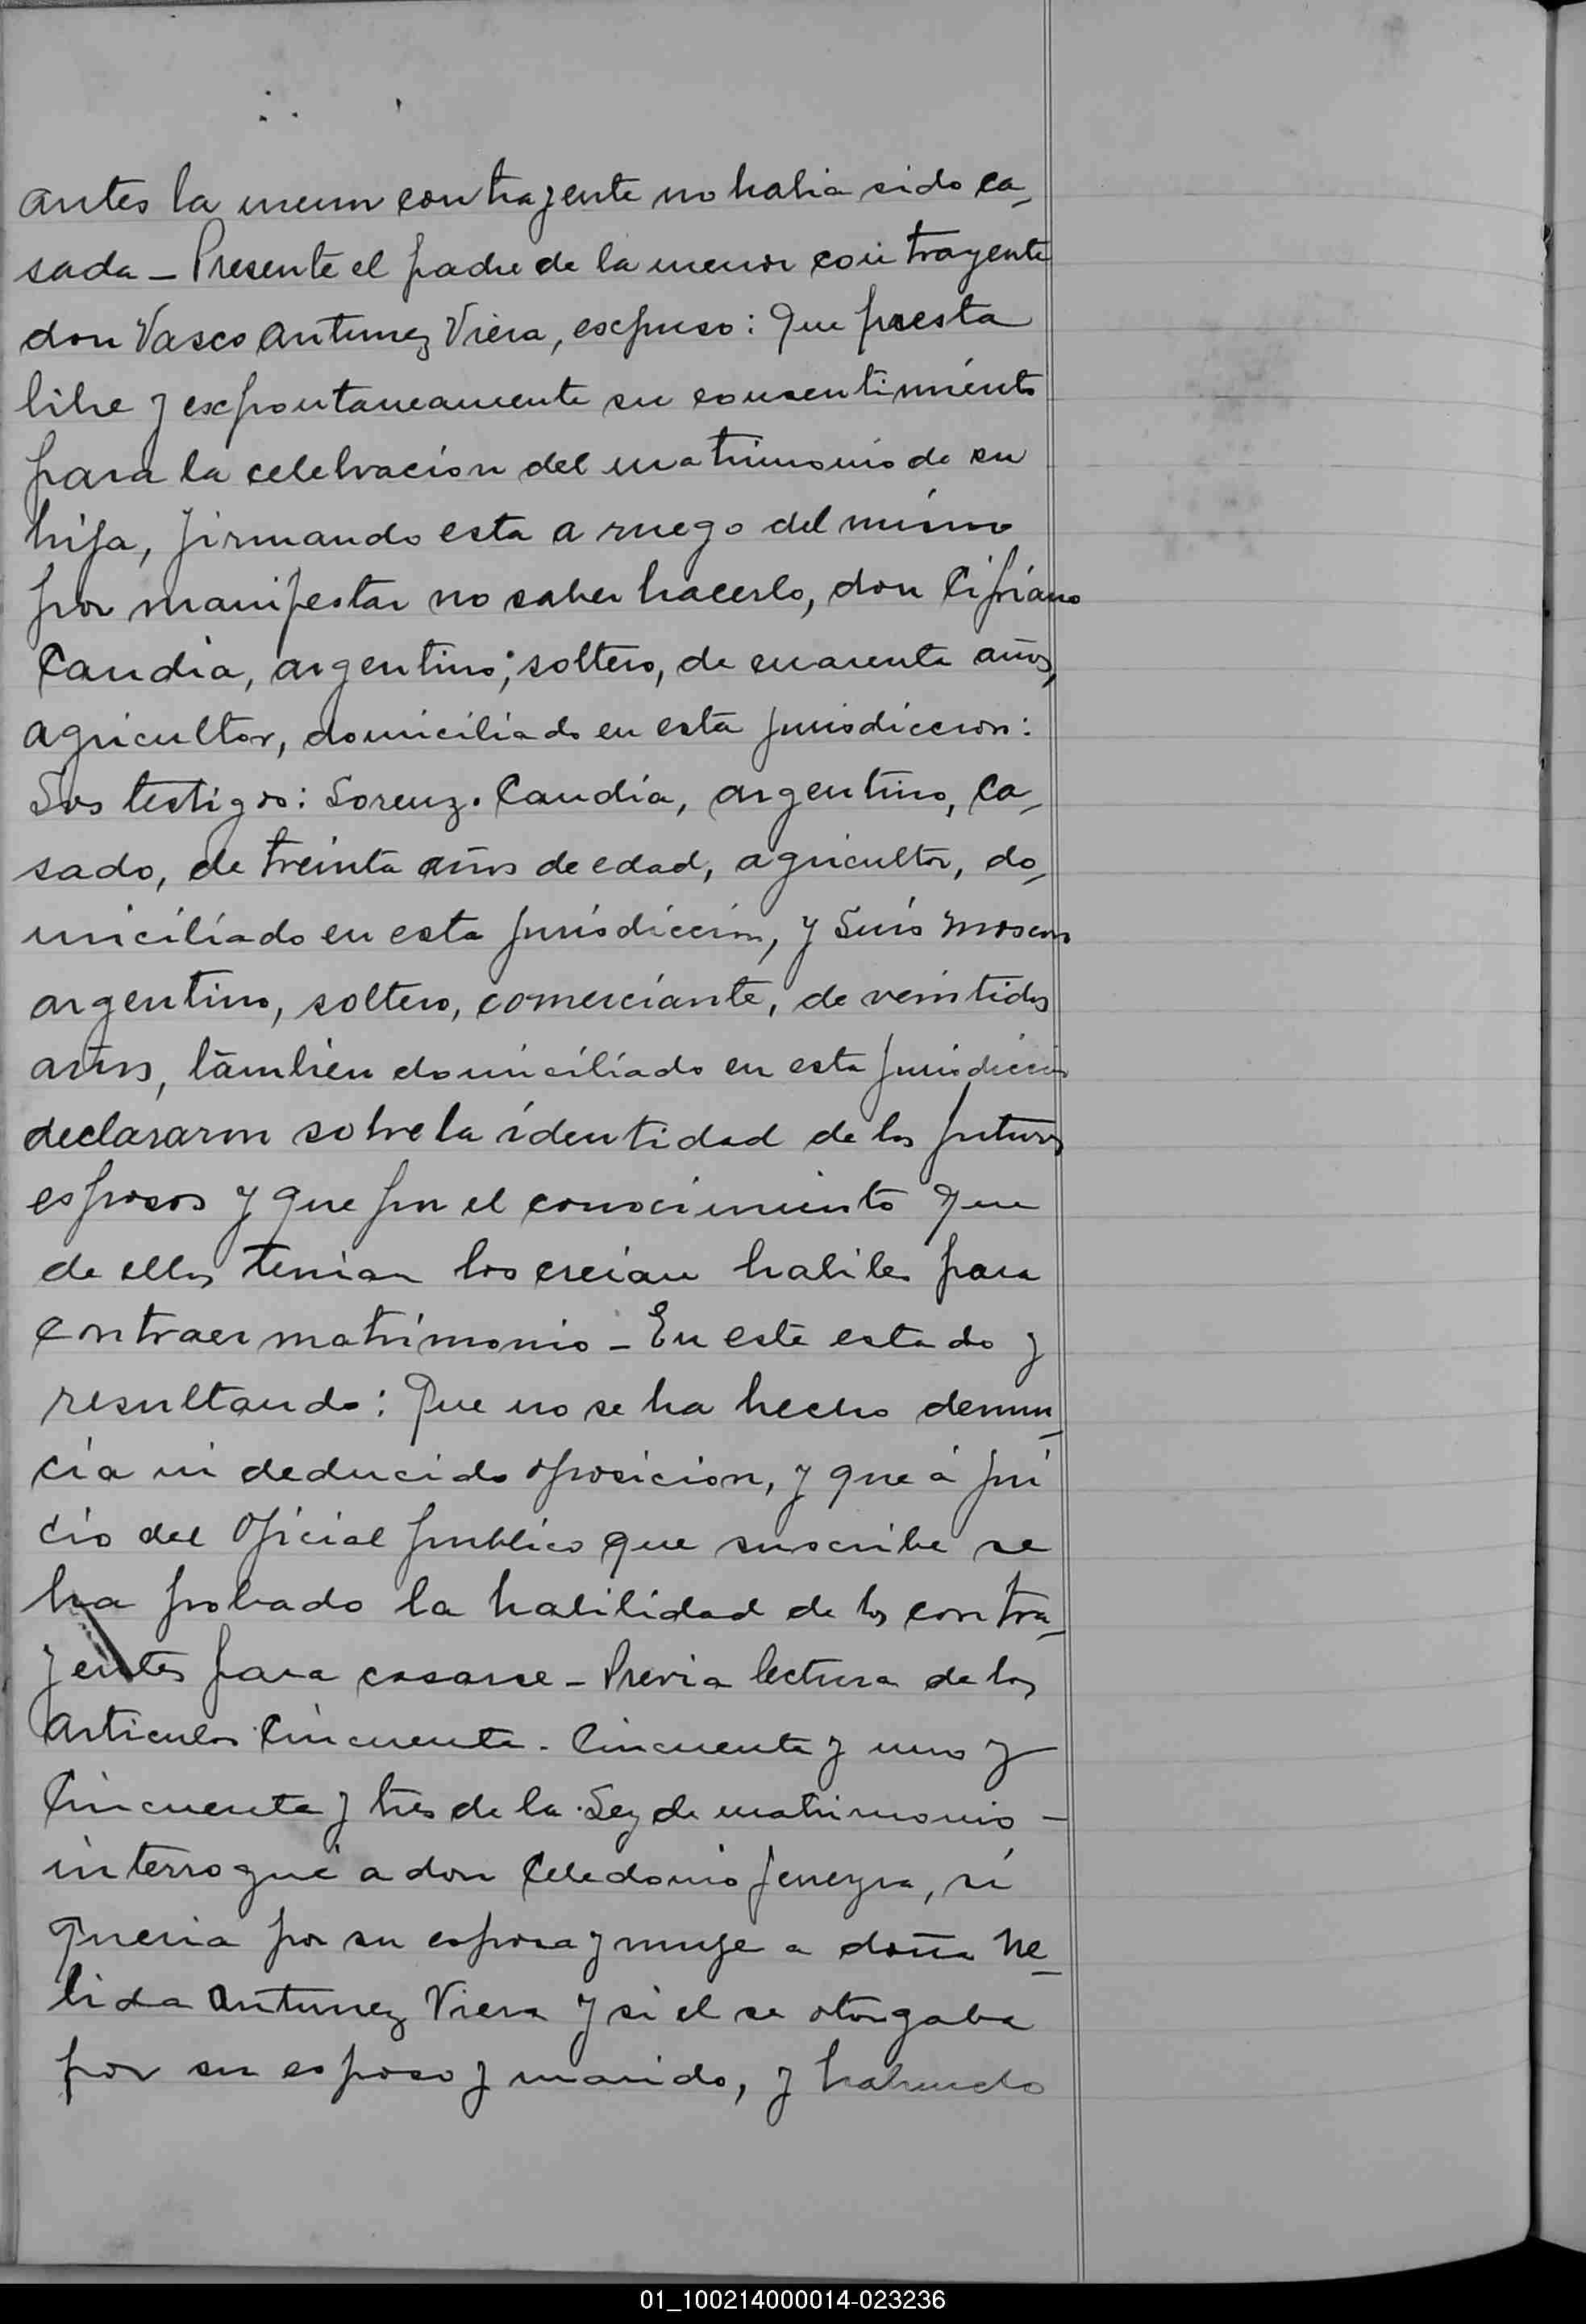 antes la menor contrayente no habia sido ca-
sada - Presente el padre de la menor contrayente
don Vasco Antunez Viera, expuso: Que presta
libre y expontaneamente su consentimiento
para la celebracion del matrimonio de su
hija, firmando esta a ruego del mismo
por manifestar no saber hacerlo, don Cipriano
Candia, argentino, soltero, de cuarenta años,
agricultor, domiciliado en esta jurisdiccion:
Los testigos: Lorenzo Candia, argentino, ca-
sado, de treinta años de edad, agricultor, do-
miciliado en esta jurisdiccion, y Luis
argentino, soltero, comerciante, de veintidos
años, tambien domiciliado en esta jurisdiccion
declararon sobre la identidad de los futuros
esposos y que por el conocimiento que
de ellos tenian los creian habiles para
contraer matrimonio - En este estado y
resultando: Que no se ha hecho denun-
cia ni deducido oposicion, y que á jui
cio del Oficial publico que suscribe se
ha probado la habilidad de los contra-
yentes para casarse - Previa lectura de los
articulos Cincuenta - Cincuenta y uno y
Cincuenta y tres de la Ley de matrimonio -
interrogué a don Celedonio Fereyra, si
queria por su esposa y muje a doña Ne-
lida Antunez Viera y si el se otorgaba
por su esposo y marido, y habiendo
01_100214000014-023236